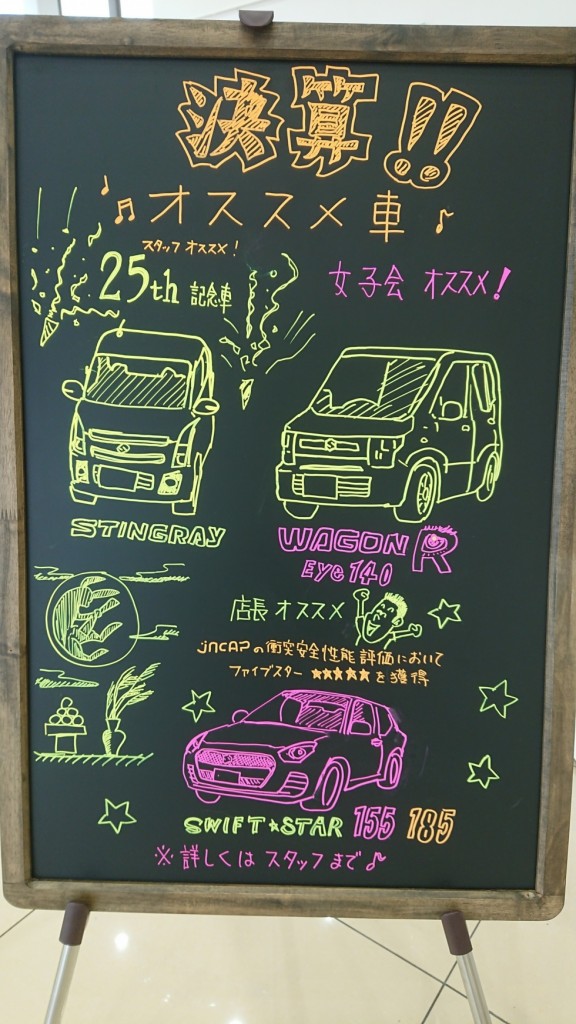 決算!!
オススメ車
スタッフ オススメ!
25th 記念車
女子会 オススメ!
STINGRAY
WAGON R
Eye 140
店長 オススメ
JNCAPの衝突安全性能評価において
ファイブスター ★★★★★を獲得
SWIFT★STAR 155 185
※詳しくは スタッフまで♪